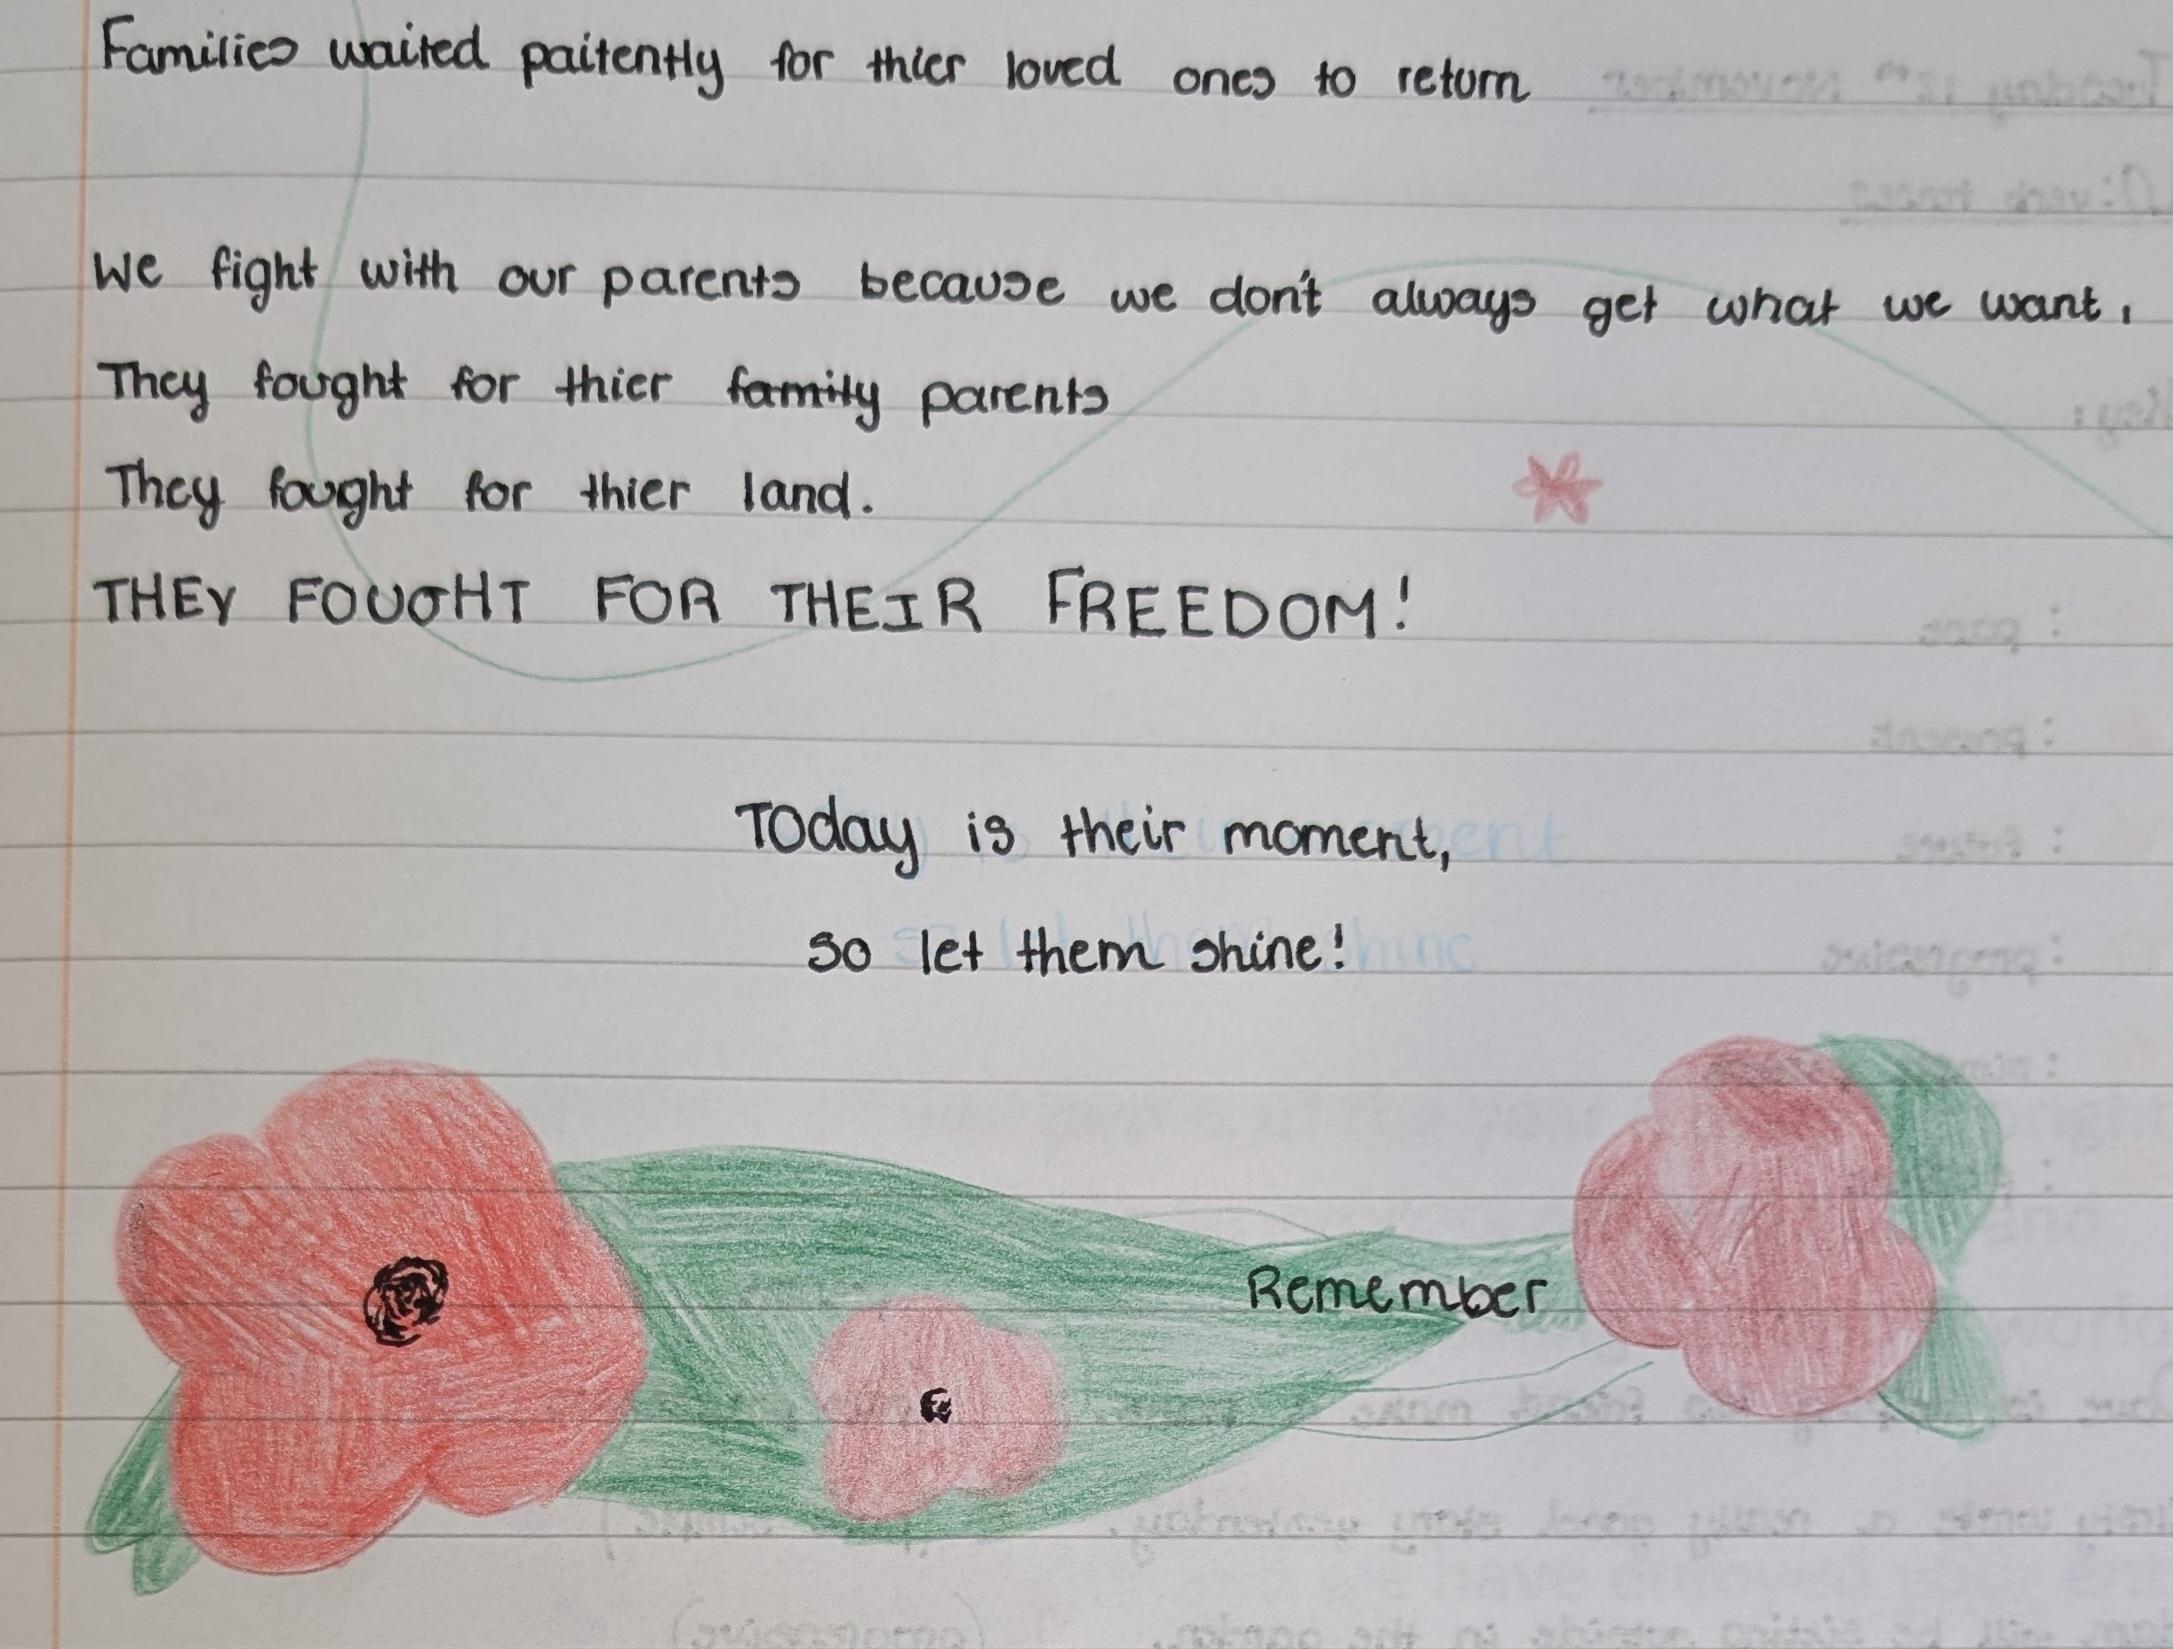 Families waited paitently for thier loved ones to return
We fight with our parents because we don't always get what we want,
They fought for thier family parents
They fought for thier land.
THEY FOUGHT FOR THEIR FREEDOM!
Today is their moment,
so let them shine!
Remember